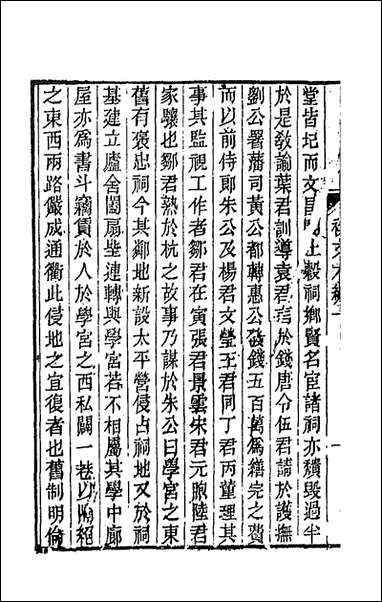 堂皆圮而文昌土穀祠鄉賢名宦諸祠亦積毀過半
於是敎諭葉君訓導袁君言於錢唐令伍君請於護撫
劉公署藩司黃公都轉惠公發錢五百萬爲繕完之費
而以前侍郎朱公及楊君文瑩王君同丁君丙董理其
事其監視工作者鄒君在寅張君景雲宋君元煦陸君
家驤也鄒君熟於杭之故事乃謀於朱公曰學宮之東
舊有褒忠祠今其鄰地新設太平營侵占祠地又於祠
基建立廬舍闔扇垒連轉與學宮若不相屬其學中廊
屋亦爲書斗竊賃於人於學宮之西私闢一巷以隔絕
之東西兩路儼成通衢此侵地之宜復者也舊制明倫